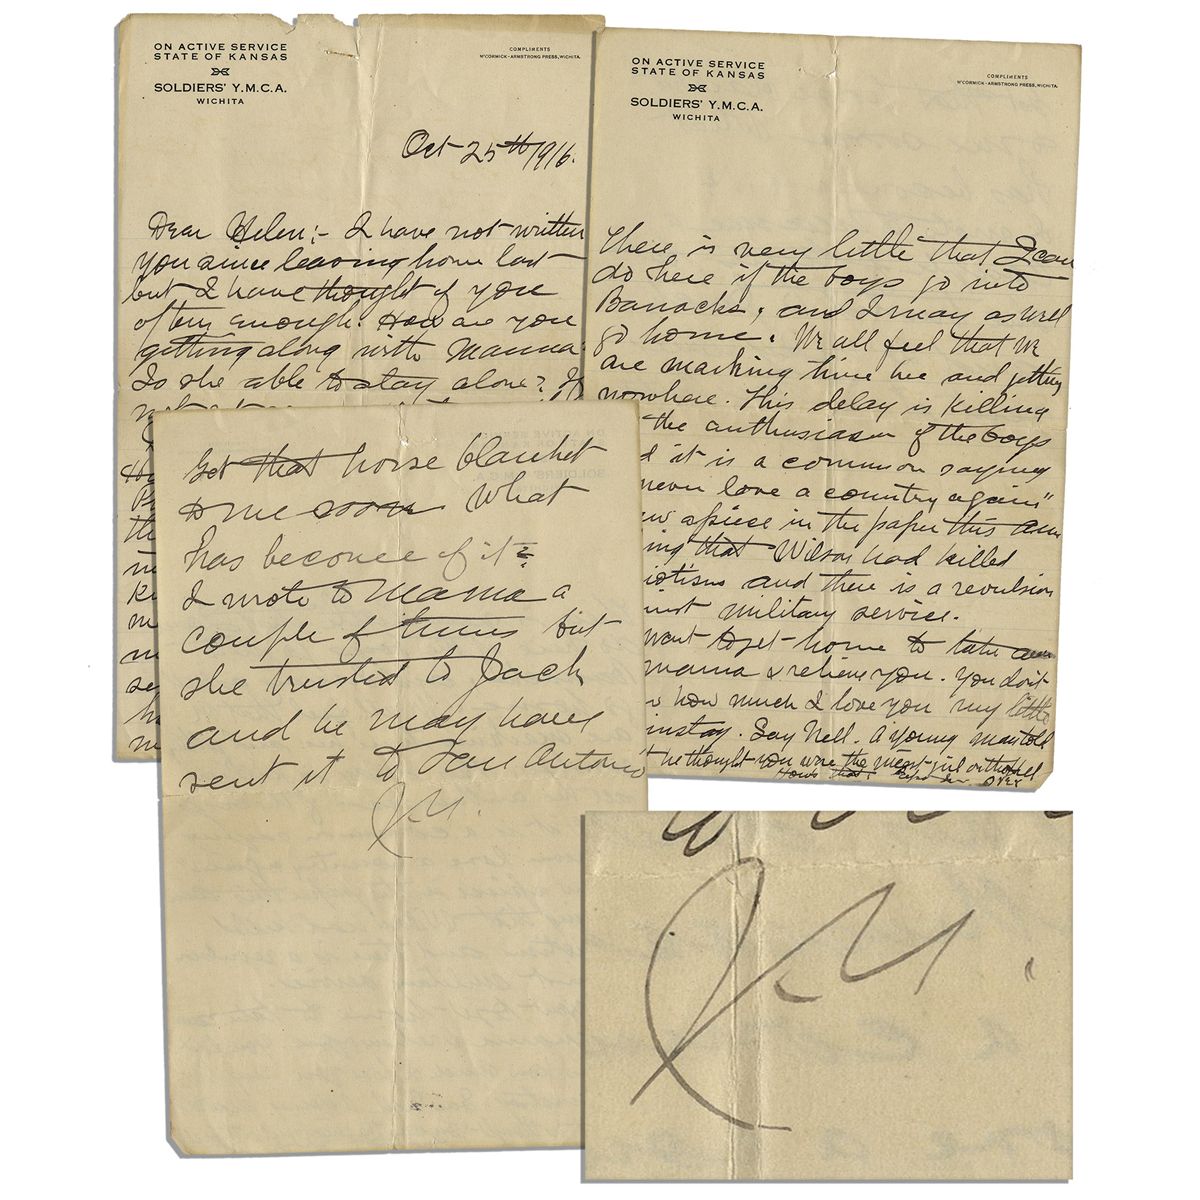 ON ACTIVE SERVICE
STATE OF KANSAS
SOLDIERS' Y.M.C.A.
WICHITA
COMPLIMENTS
McCORMICK-ARMSTRONG PRESS, WICHITA.
Oct 25th 1916.
Dear Helen:- I have not written
you since leaving home last
but I have thought of you
often enough. How are you
getting along with Mamma.
Is she able to stay alone? If
ON ACTIVE SERVICE
STATE OF KANSAS
SOLDIERS' Y.M.C.A.
WICHITA
COMPLIMENTS
McCORMICK-ARMSTRONG PRESS, WICHITA.
There is very little that I can
do here if the boys go into
Barracks, and I may as well
go home. We all feel that we
are marking time here and getting
nowhere. This delay is killing
the enthusiasm of the boys
it is a common saying
never love a country again"
a piece in the paper this
ing that Wilson had killed
iotism and there is a revulsion
inst military service.
want to get home to take
mama & relieve you. You don't
how much I love you my little
instay. Say Nell. A young man told
he thought you were the girl
How's that? Over
Got that horse blanket
to me soon what
has become of it?
I wrote to Mama a
couple of times but
she trusted to Jack
and he may have
sent it to San Antonio
J.M.
J.M.